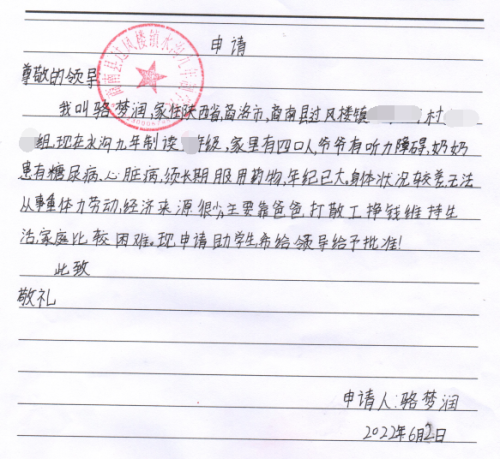 申请
尊敬的领导
我叫骆梦润,家住陕西省商洛市,商南县过风楼镇 村
组,现在水沟九年制读 年级,家里有四口人,爷爷有听力障碍,奶奶
患有糖尿病、心脏病,须长期服用药物,年纪已大,身体状况较差无法
从事重体力劳动,经济来源很少,主要靠爸爸打散工挣钱维持生
活,家庭比较困难。现申请助学生希给领导给予批准!
此致
敬礼
申请人:骆梦润
2022年6月2日